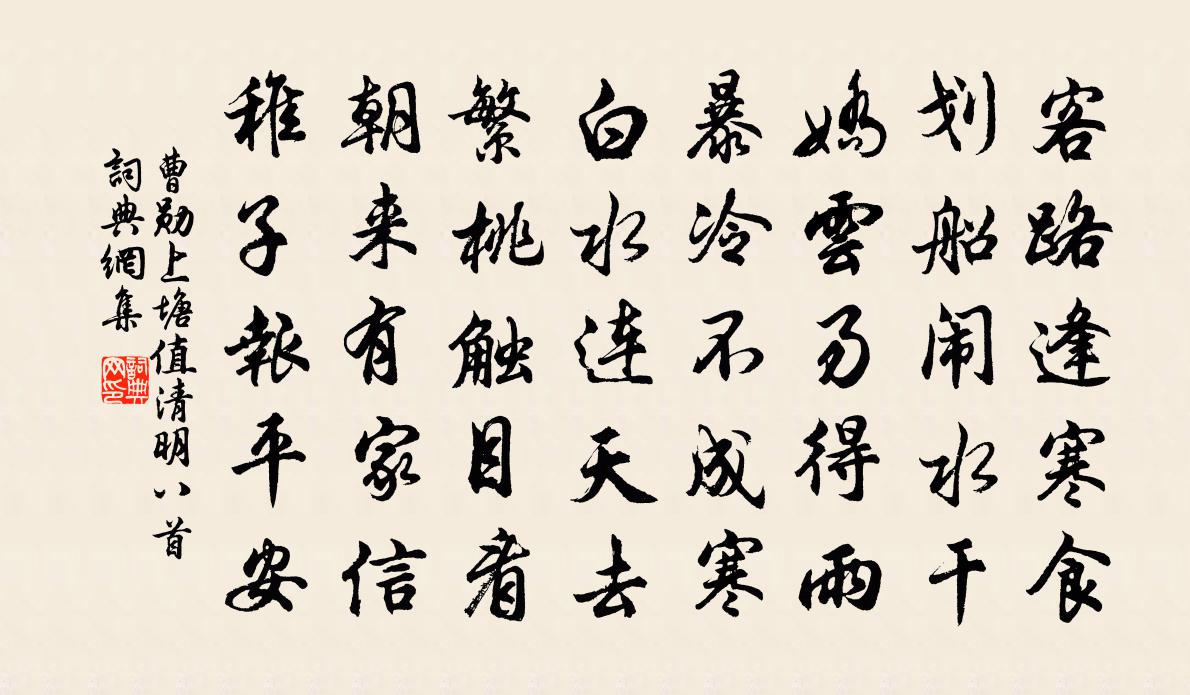 客路逢寒食
划船闹水干
娇雲易得雨
暴冷不成寒
白水连天去
繁桃触目看
朝来有家信
稚子報平安
曹勋上塘值清明八首
詞典網集
詞典网印